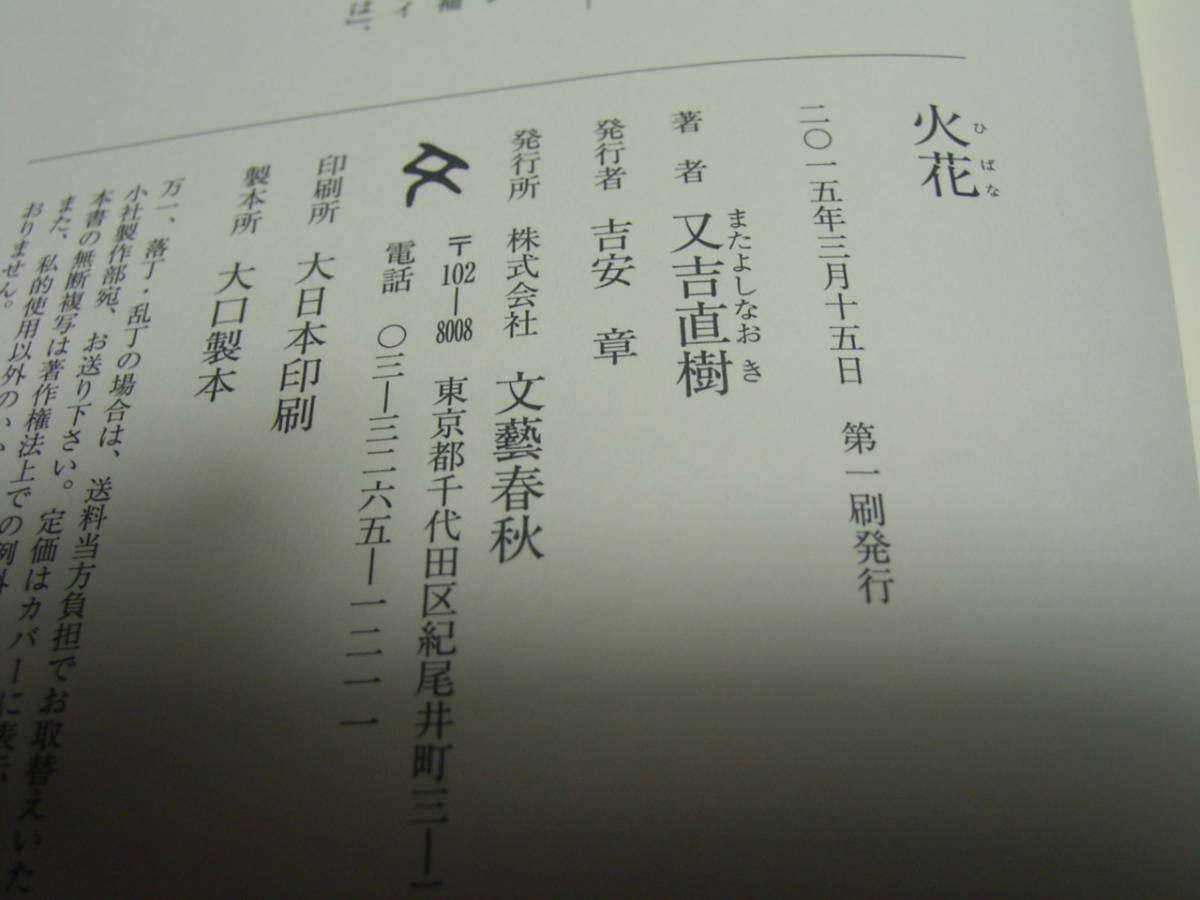 火花
ひばな
二〇一五年三月十五日　第一刷発行
著　者　又吉直樹
またよしなおき
発行者　吉安　章
発行所　株式会社　文藝春秋
〒102―8008　東京都千代田区紀尾井町三―
電話　〇三―三二六五―一二一一
印刷所　大日本印刷
製本所　大口製本
万一、落丁・乱丁の場合は、送料当方負担でお取替えいた
小社製作部宛、お送り下さい。定価はカバーに表示
本書の無断複写は著作権法上での例外
また、私的使用以外のいか
おりません。